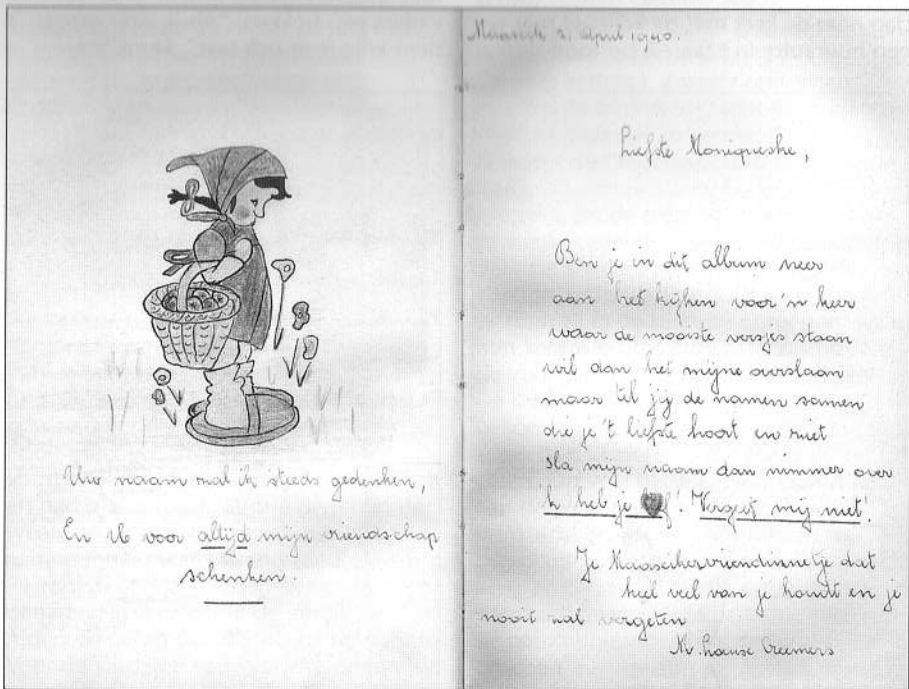 Uw naam zal ik steeds gedenken,
En U voor altijd mijn vriendschap
schenken.
Maaseik 21 April 1940.
Liefste Moniqueske,
Ben je in dit album neer
aan het kijken voor 'n keer
waar de mooiste versjes staan
wil dan het mijne overslaan
maar tel jij de namen samen
die je 't liefste hoort en ziet
sla mijn naam dan nimmer over
'k heb je lief! Vergeet mij niet!
Je Maaseikervriendinnetje dat
heel veel van je houdt en je
nooit zal vergeten
M. Creemers